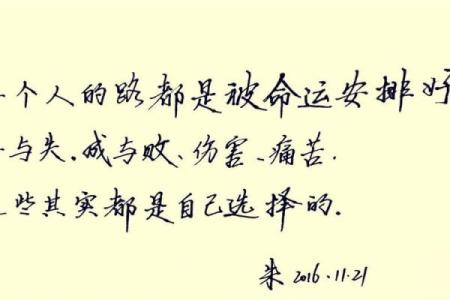 个人的路都是被命运安排好
与失.成与败、伤害、痛苦.
些其实都是自己选择的.
朱 2016.11.21